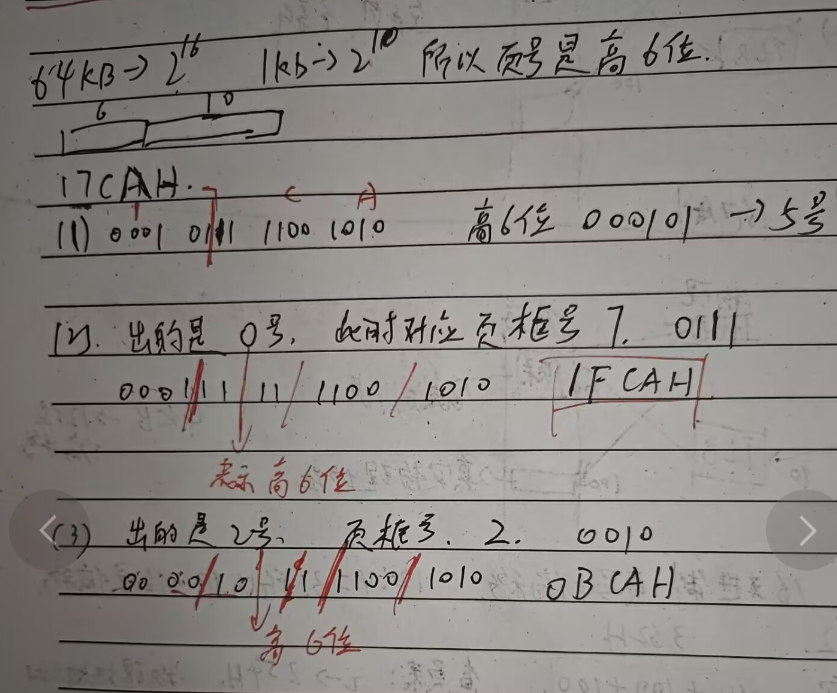 64kB→2^16 1kb→2^10 所以页号是高6位.
6 10
17CAH.
C A
(1) 0001 0111 1100 1010 高6位 000101 → 5号
(2). 出的是 0号. 此时对应页框号 7. 0111
0001 11 11 / 1100 / 1010 1FCAH
表示高6位
(3) 出的是2号. 页框号. 2. 0010
00 00/10 11/1100/1010 0BCAH
高6位